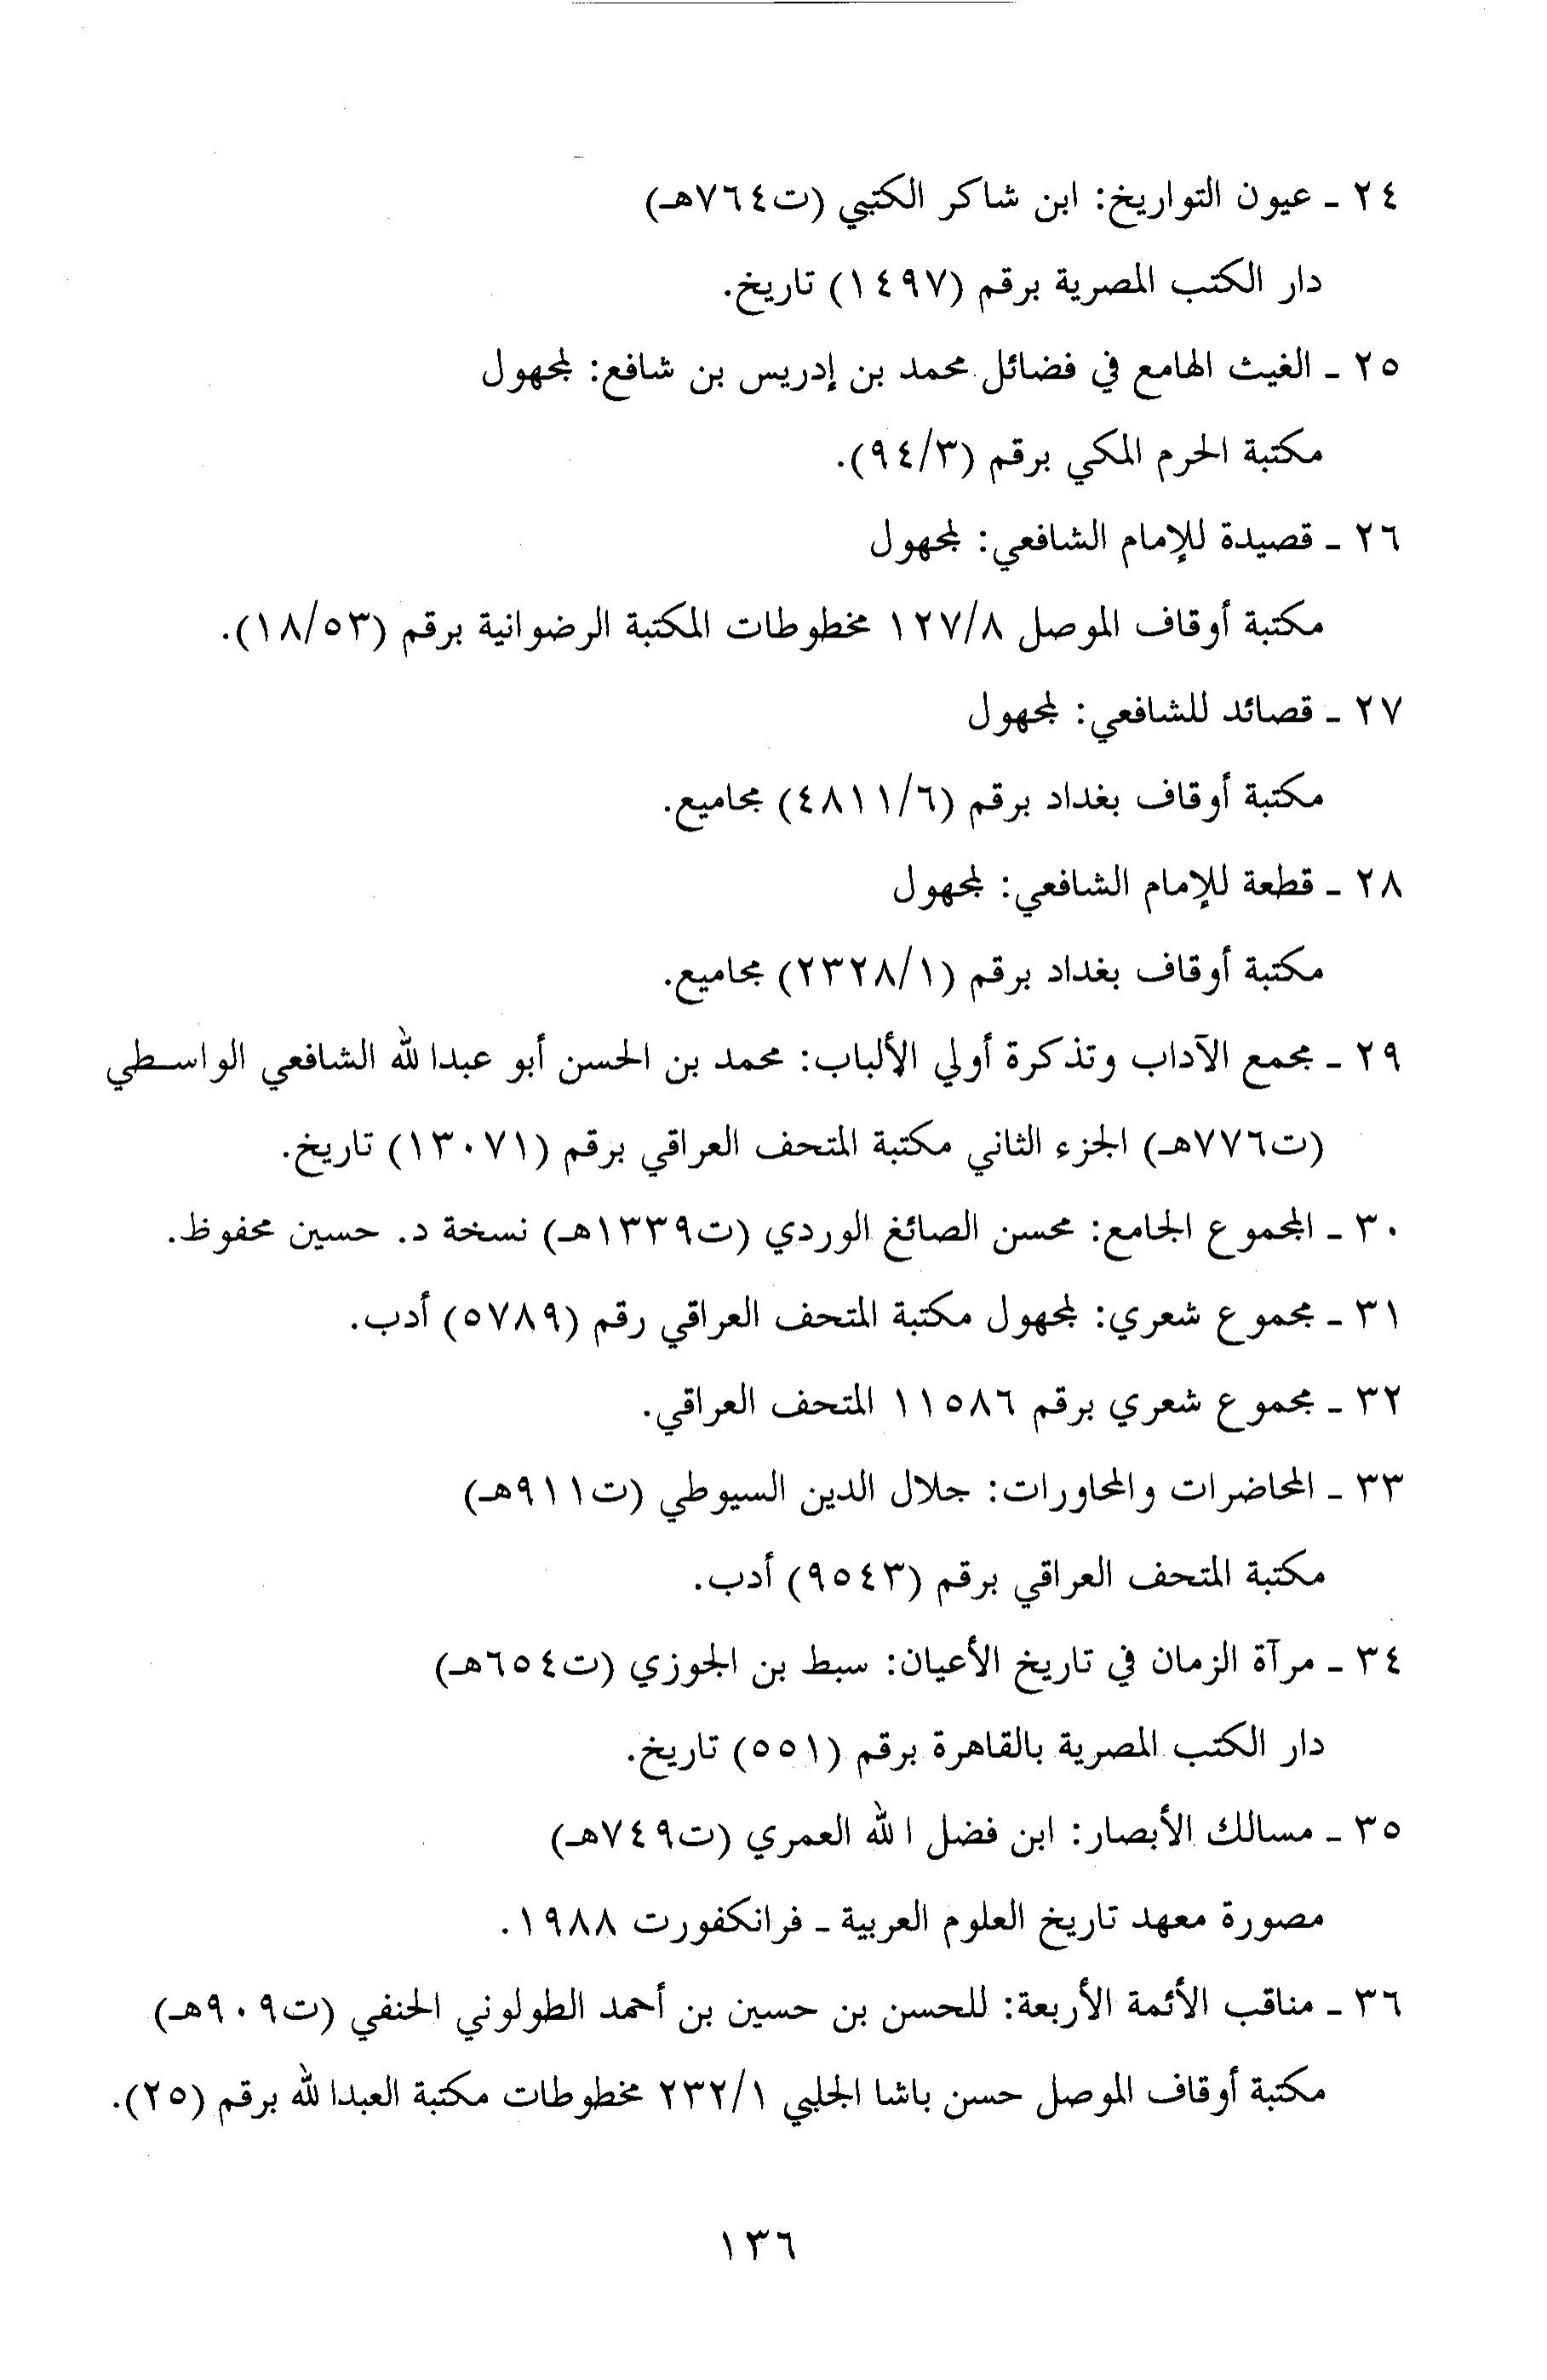 ٢٤ ـ عيون التواريخ: ابن شاكر الكتبي (ت٧٦٤هـ)
دار الكتب المصرية برقم (١٤٩٧) تاريخ.
٢٥ ـ الغيث الهامع في فضائل محمد بن إدريس بن شافع: لمجهول
مكتبة الحرم المكي برقم (٩٤/٣).
٢٦ ـ قصيدة للإمام الشافعي: لمجهول
مكتبة أوقاف الموصل ١٢٧/٨ مخطوطات المكتبة الرضوانية برقم (١٨/٥٣).
٢٧ ـ قصائد للشافعي: لمجهول
مكتبة أوقاف بغداد برقم (٤٨١١/٦) مجاميع.
٢٨ ـ قطعة للإمام الشافعي: لمجهول
مكتبة أوقاف بغداد برقم (٢٣٢٨/١) مجاميع.
٢٩ ـ مجمع الآداب وتذكرة أولي الألباب: محمد بن الحسن أبو عبدالله الشافعي الواسطي
(ت٧٧٦هـ) الجزء الثاني مكتبة المتحف العراقي برقم (١٣٠٧١) تاريخ.
٣٠ ـ المجموع الجامع: محسن الصائغ الوردي (ت١٣٣٩هـ) نسخة د. حسين محفوظ.
٣١ ـ مجموع شعري: لمجهول مكتبة المتحف العراقي رقم (٥٧٨٩) أدب.
٣٢ ـ مجموع شعري برقم ١١٥٨٦ المتحف العراقي.
٣٣ ـ المحاضرات والمحاورات: جلال الدين السيوطي (ت٩١١هـ)
مكتبة المتحف العراقي برقم (٩٥٤٣) أدب.
٣٤ ـ مرآة الزمان في تاريخ الأعيان: سبط بن الجوزي (ت٦٥٤هـ)
دار الكتب المصرية بالقاهرة برقم (٥٥١) تاريخ.
٣٥ ـ مسالك الأبصار: ابن فضل الله العمري (ت٧٤٩هـ)
مصورة معهد تاريخ العلوم العربية ـ فرانكفورت ١٩٨٨.
٣٦ ـ مناقب الأئمة الأربعة: للحسن بن حسين بن أحمد الطولوني الحنفي (ت٩٠٩هـ)
مكتبة أوقاف الموصل حسن باشا الجلبي ٢٣٢/١ مخطوطات مكتبة العبدالله برقم (٢٥).
١٣٦